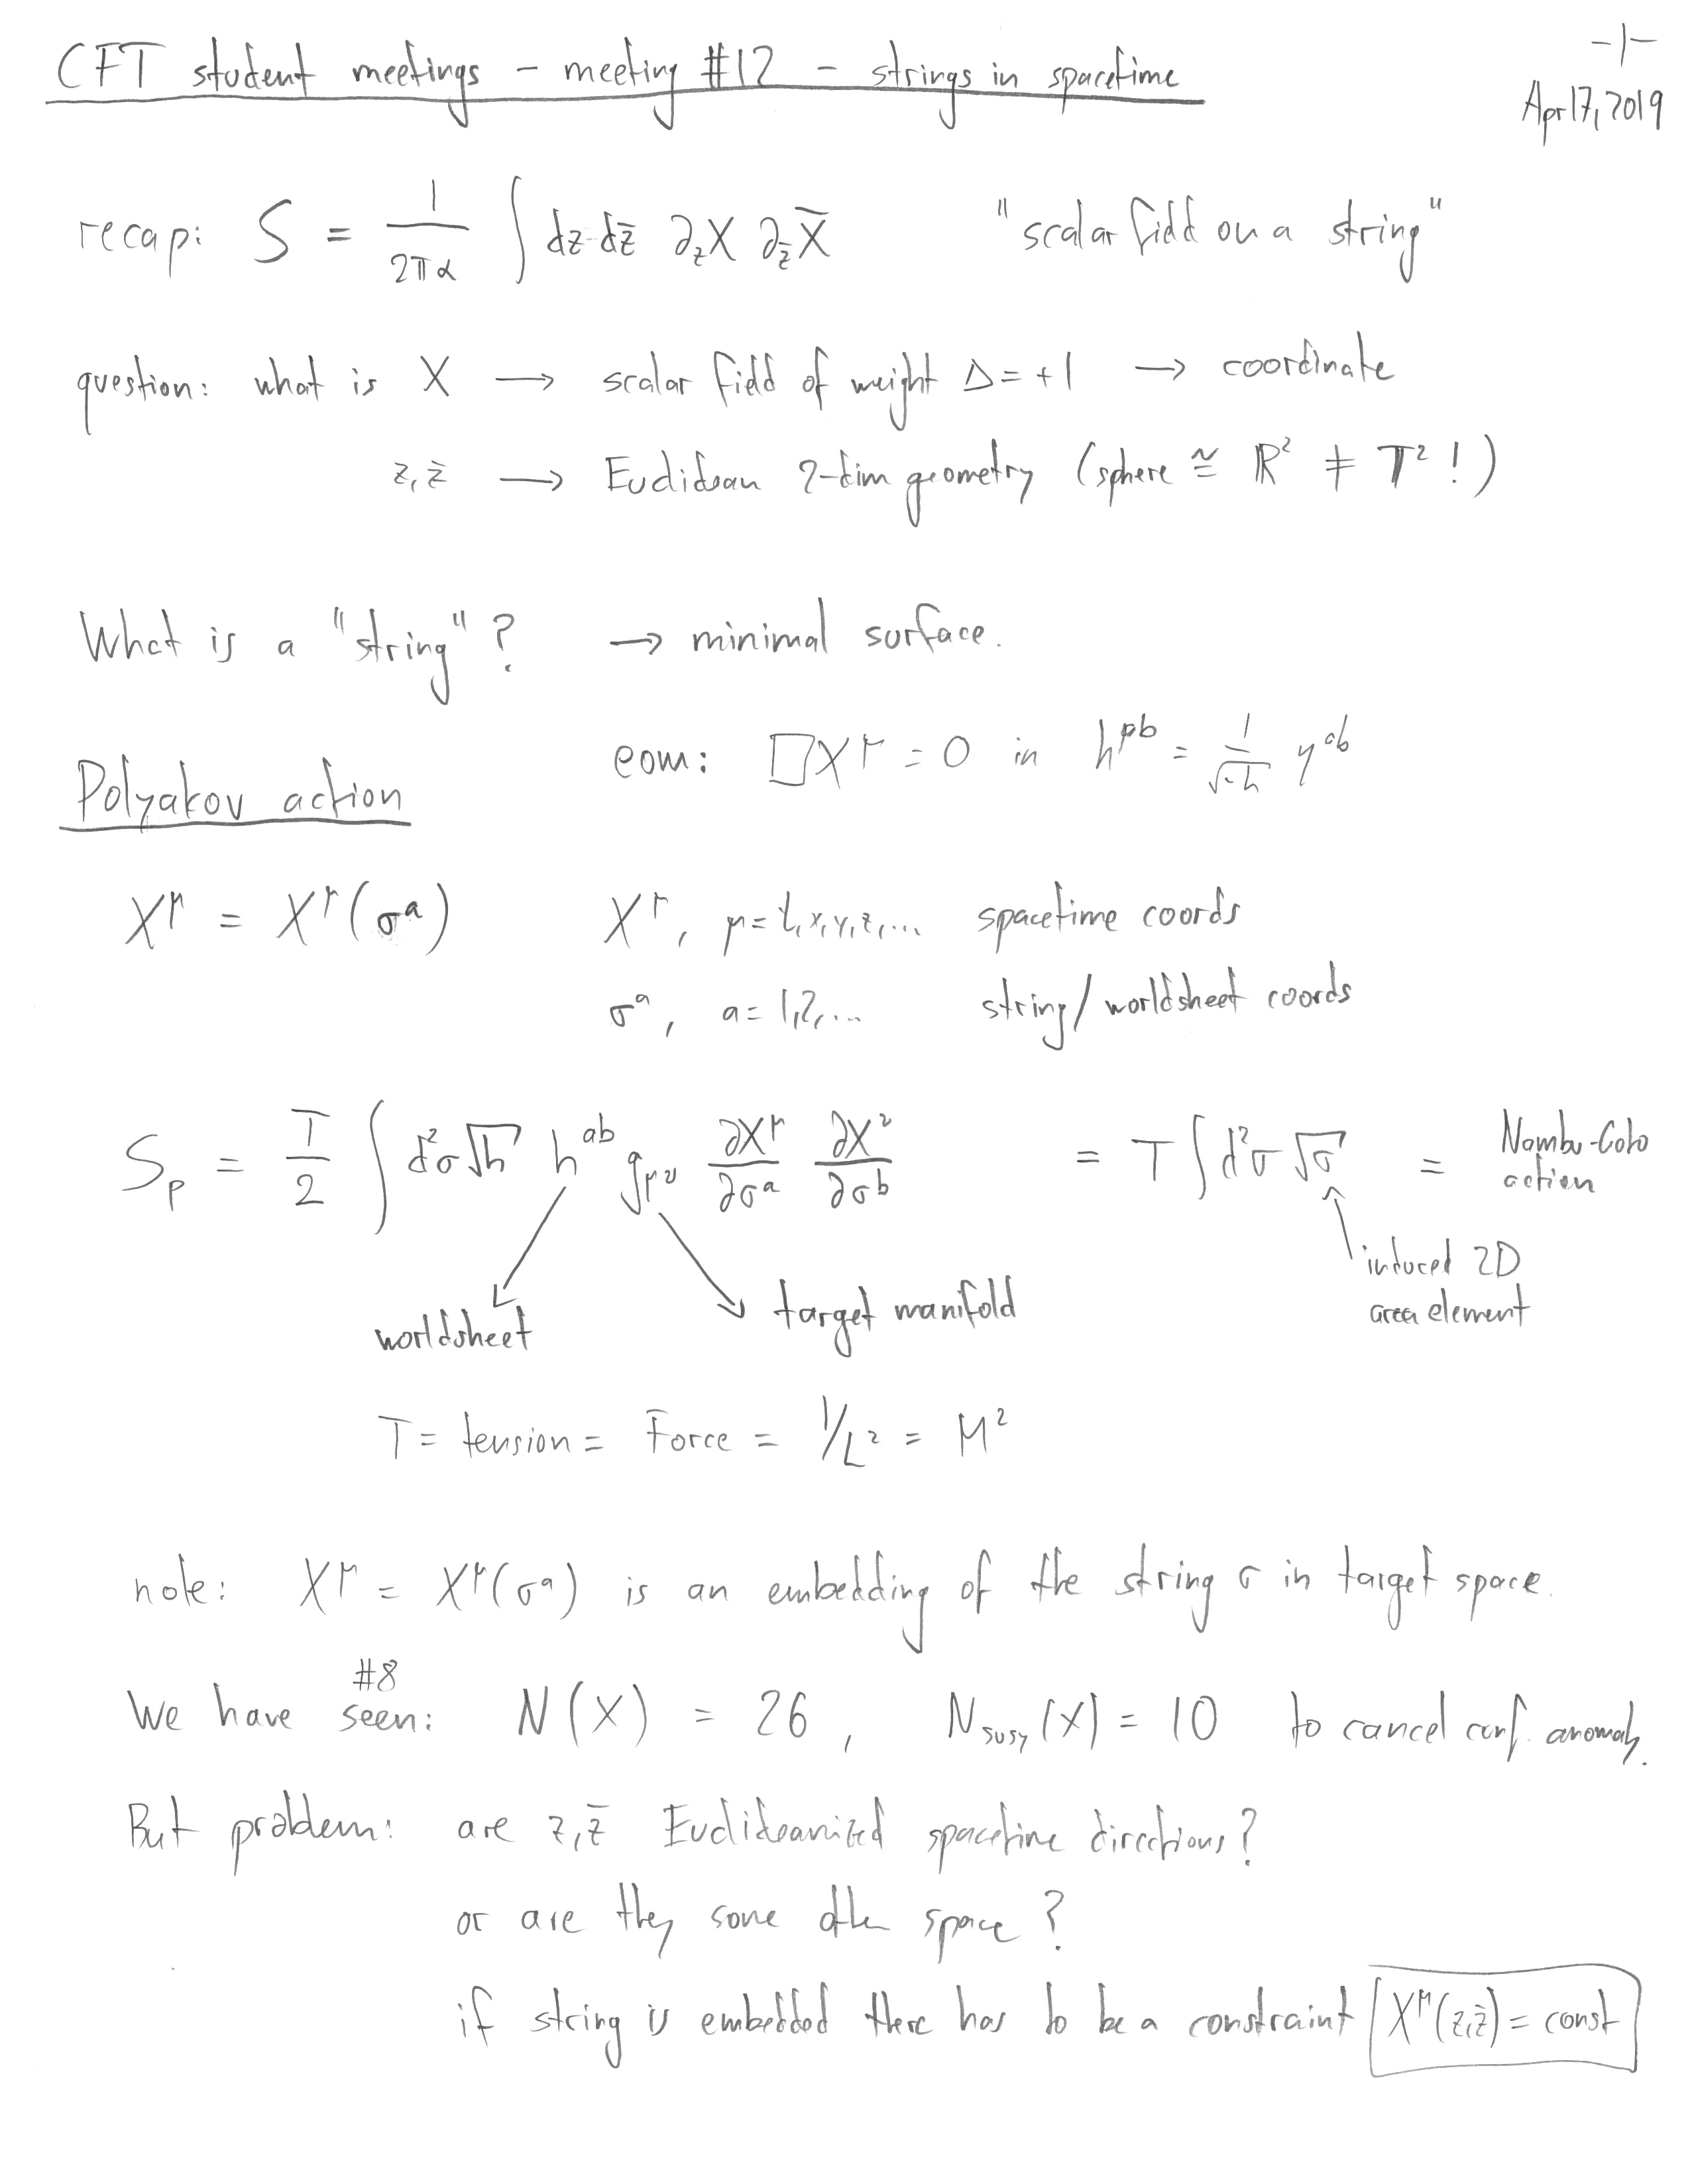 CFT student meetings - meeting #12 - strings in spacetime
-1-
Apr 17, 2019
recap: S = 1/(2πα) ∫ dz dz̄ ∂_z X ∂_z̄ X̄ "scalar field on a string"
question: what is X → scalar field of weight Δ = +1 → coordinate
z, z̄ → Euclidean 2-dim geometry (sphere ≅ ℝ² ≠ T² !)
What is a "string"? → minimal surface.
eom: □X^μ = 0 in h^ab = 1/√-h η^ab
Polyakov action
X^μ = X^μ(σ^a) X^μ, μ = t, x, y, z, ... spacetime coords
σ^a, a = 1, 2, ... string/worldsheet coords
S_P = T/2 ∫ d²σ √h h^ab g_μν ∂X^μ/∂σ^a ∂X^ν/∂σ^b = T ∫ d²σ √σ = Nambu-Goto action
induced 2D
area element
worldsheet target manifold
T = tension = Force = 1/L² = M²
note: X^μ = X^μ(σ^a) is an embedding of the string σ in target space.
#8
We have seen: N(X) = 26, N_susy(X) = 10 to cancel conf. anomaly.
But problem: are z, z̄ Euclideanized spacetime directions?
or are they some other space?
if string is embedded there has to be a constraint X^μ(z,z̄) = const